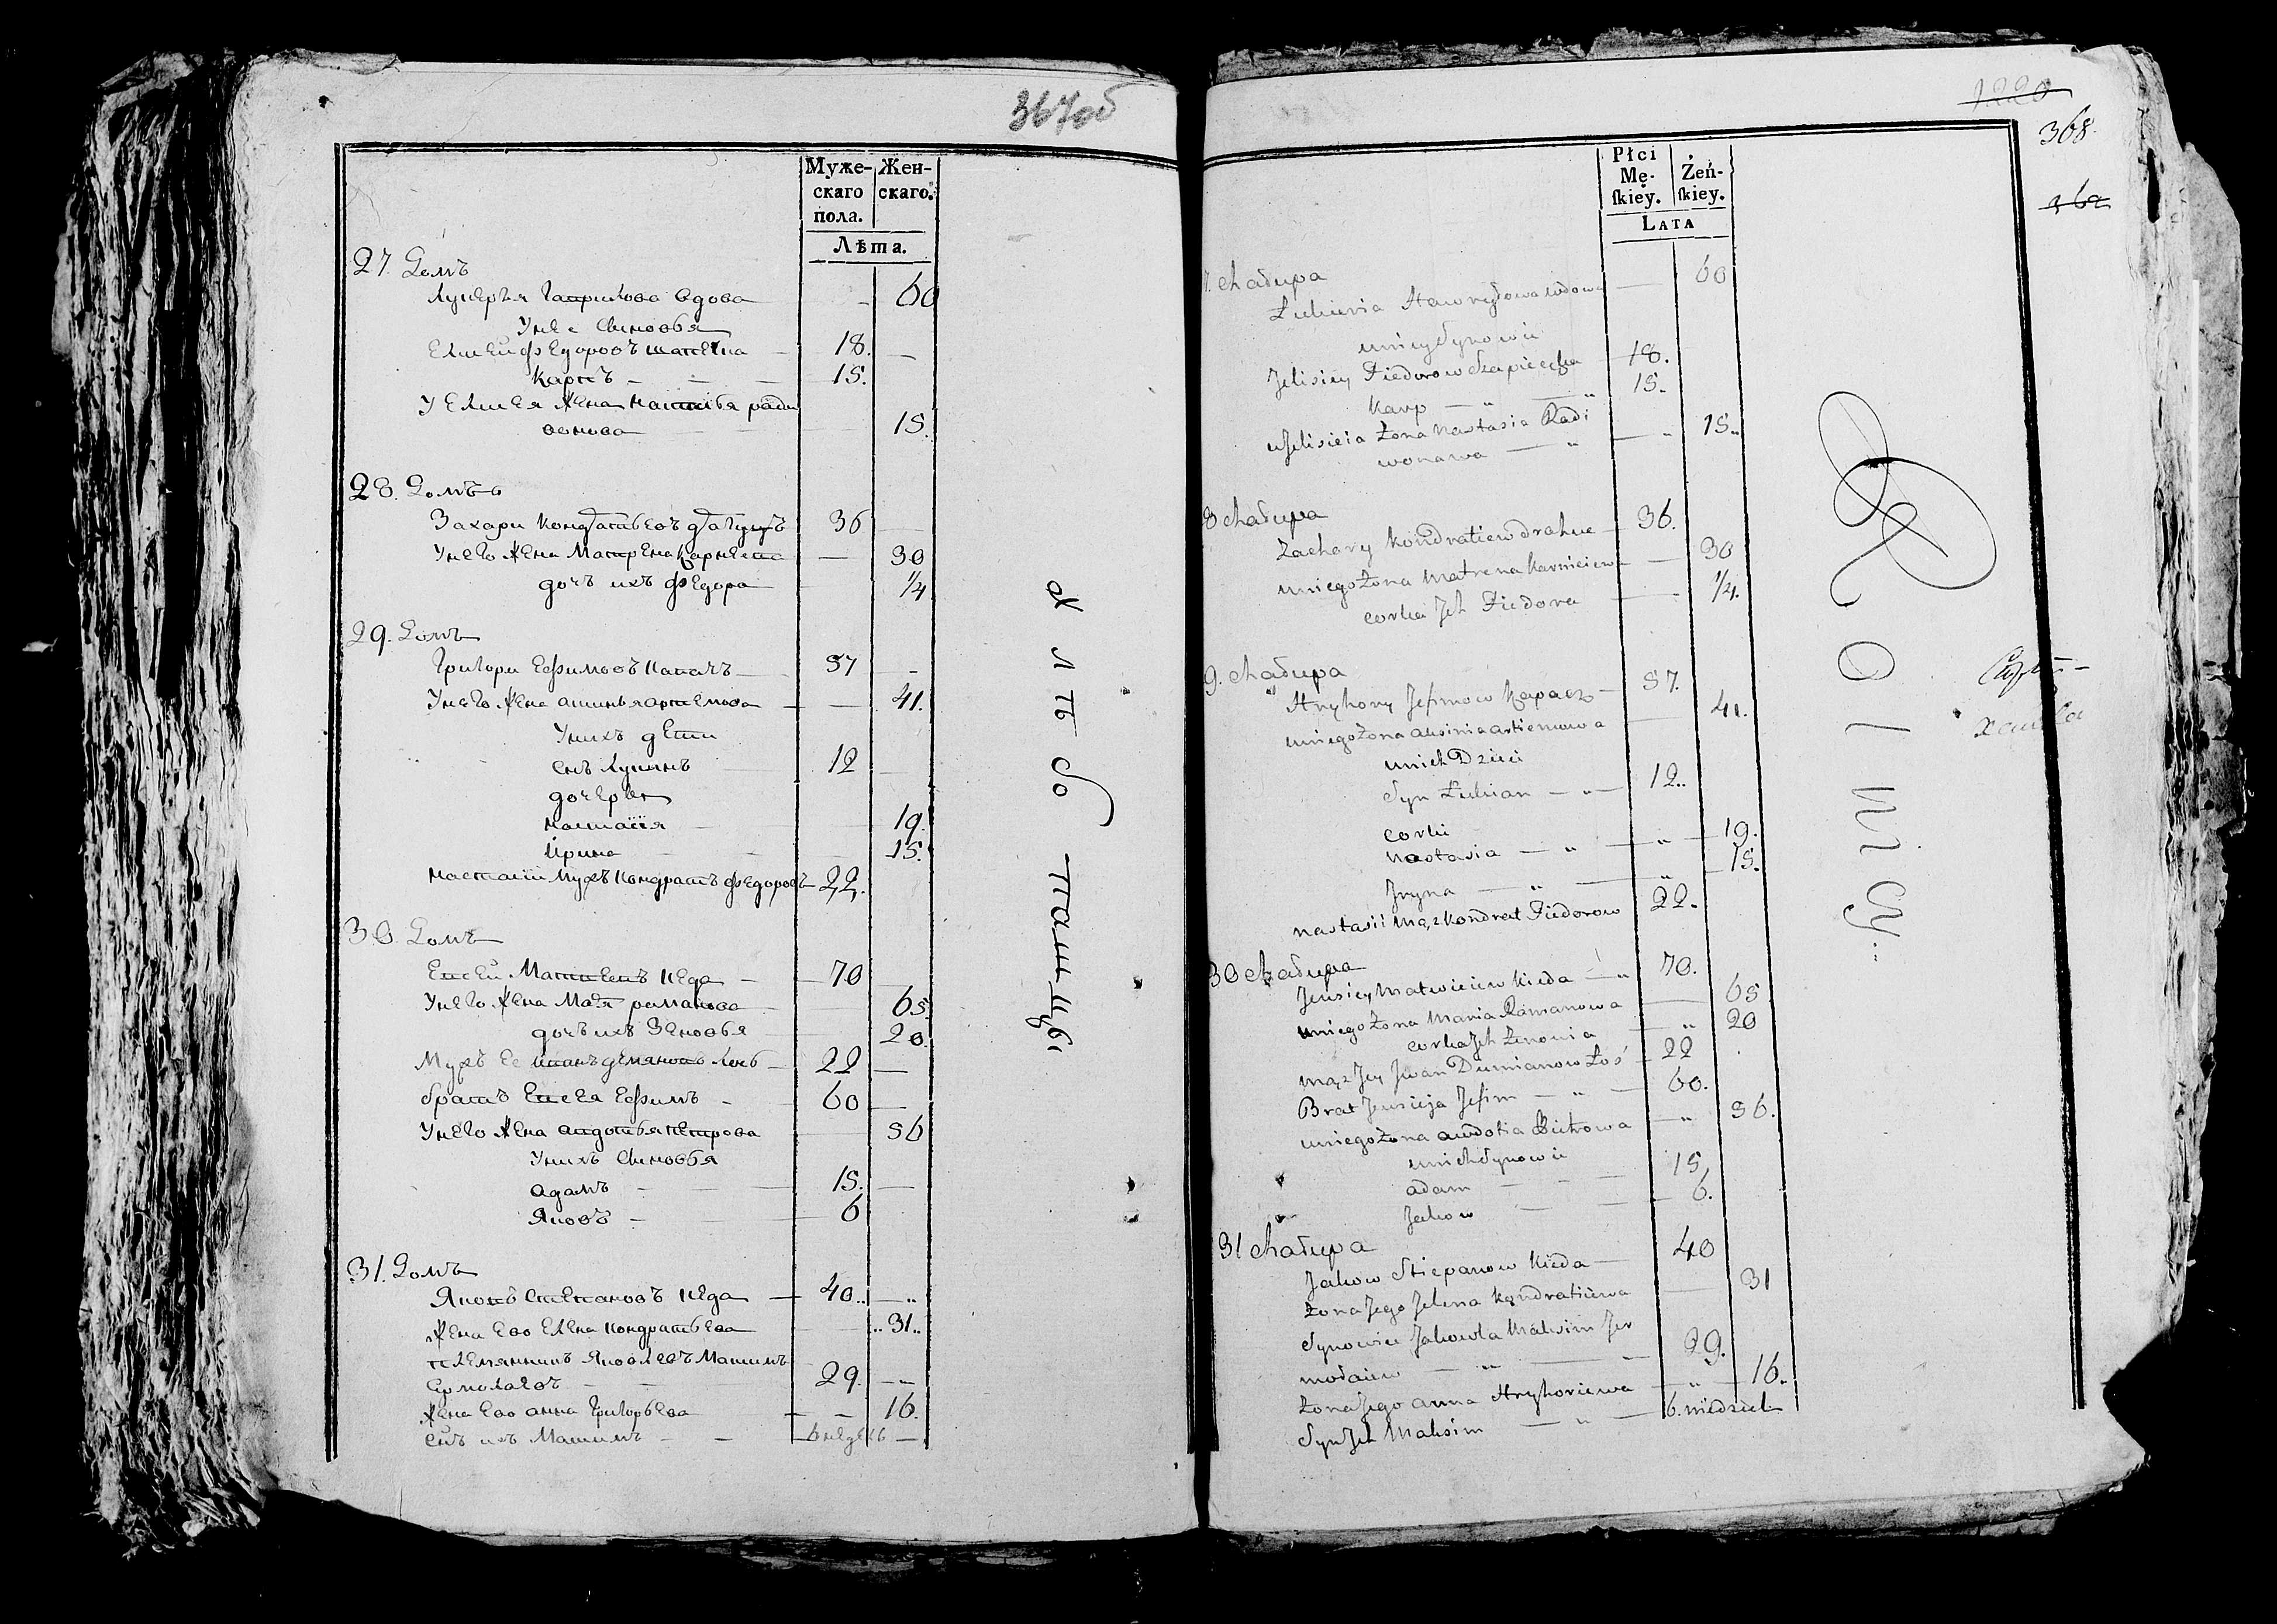 367об
Муже- Жен-
скаго скаго.
пола.
Лѣта.
27. Домъ
Лукерья Гаврилова вдова — 60
У нее синовья
Елисей Федоровъ — 18. —
Карпъ — — — 15.
У Елисея жена Настасья Ради
вонова — — — 15.
28. Домъ
Захари Кондратьевъ 36 —
У него жена Матрена — 30
дочъ ихъ Федора — 1/4
29. Домъ
Григори Ефимовъ Капачъ — 57 —
У него жена Аксинья Артемова — — 41.
У нихъ дети
снъ Лукянъ 12 —
дочерѣ
Настасія — 19.
Ирина — — 15.
Настасіи мужъ Кондратъ Федоровъ — 22.
30. Домъ
Евсей Матвеевъ Кеда — 70
У него жена Мария Раманова — 65.
дочъ ихъ Зеновья 20.
Мужъ ее Иванъ Демяновъ Лось — 22 —
братъ Евсея Ефимъ — 60 —
У него жена Авдотья Петрова 56
У нихъ синовья
Адамъ — — — 15. —
Яковъ — — 6
31. Домъ
Яковъ Степановъ Кеда — 40.. — „
Жена ево Елена Кондратьева — ..31..
племянникъ Яковлевъ Максимъ
Ермолаевъ — — 29. —
Жена ево Анна Григорьева — — 16.
снъ ихъ Максимъ — — 6 недель —
Хлѣбопашцы
1220
368.
362
Płci Żeń-
Mę- ſkiey.
ſkiey.
LATA
7. Chałupa
Łukieria Hawryłowa wdowa — 60
u niey Synowie
Jelisiey Fiedorow 18.
Karp — „ — „ 15.
u Jelisieia Żona Nastasia Radi
wonawa — „ — „ 15..
8 Chałupa
Zachary Kondratiew — 36.
u niego Żona Matrena Karnieiewa — 30
corka Jch Fiedora — — 1/4.
9. Chałupa
Hryhory Jefimow Kapacz — 57.
u niego Żona Aksinia Artiemowa — 41.
u nich Dzieci
Syn Łukian — „ — 12..
corki
Nastasia — „ — „ — 19.
Jryna — „ — „ — 15.
Nastasii Mąż Kondrat Fiedorow 22.
30 Chałupa
Jewsiey Matwieiew Kieda — „ 70.
u niego Żona Maria Ramanowa — 65
corka Jch Zenowia — „ 20
Mąż Jey Jwan Dumianow Łoś — 22
Brat Jewsieja Jefim — „ — 60.
u niego Żona Awdotia Pietrowa — „ 56.
u nich Synowie
Adam — — — 15
Jakow — — — 6.
31 Chałupa
Jakow Stiepanow Kieda — 40
Żona Jego Jelena Kondratiewa — 31
Synowiec Jakowla Maksim Jer
mołaiew — „ — „ 29.
Żona Jego Anna Hryhoriewa — „ — 16.
Syn Jch Maksim — „ — 6. niedziel
Rolnicy..